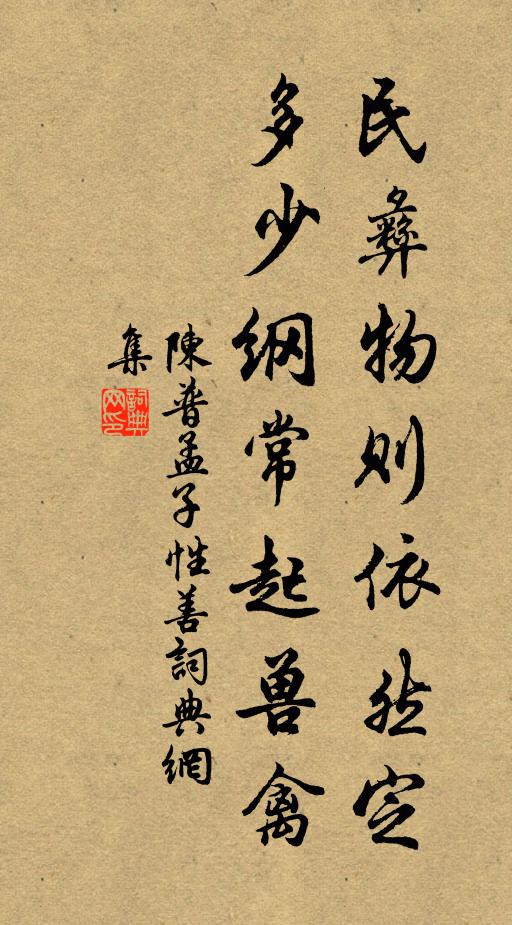 民彝物则依然定
多少纲常起兽禽
陳普孟子性善詞典網
集
詞典网印